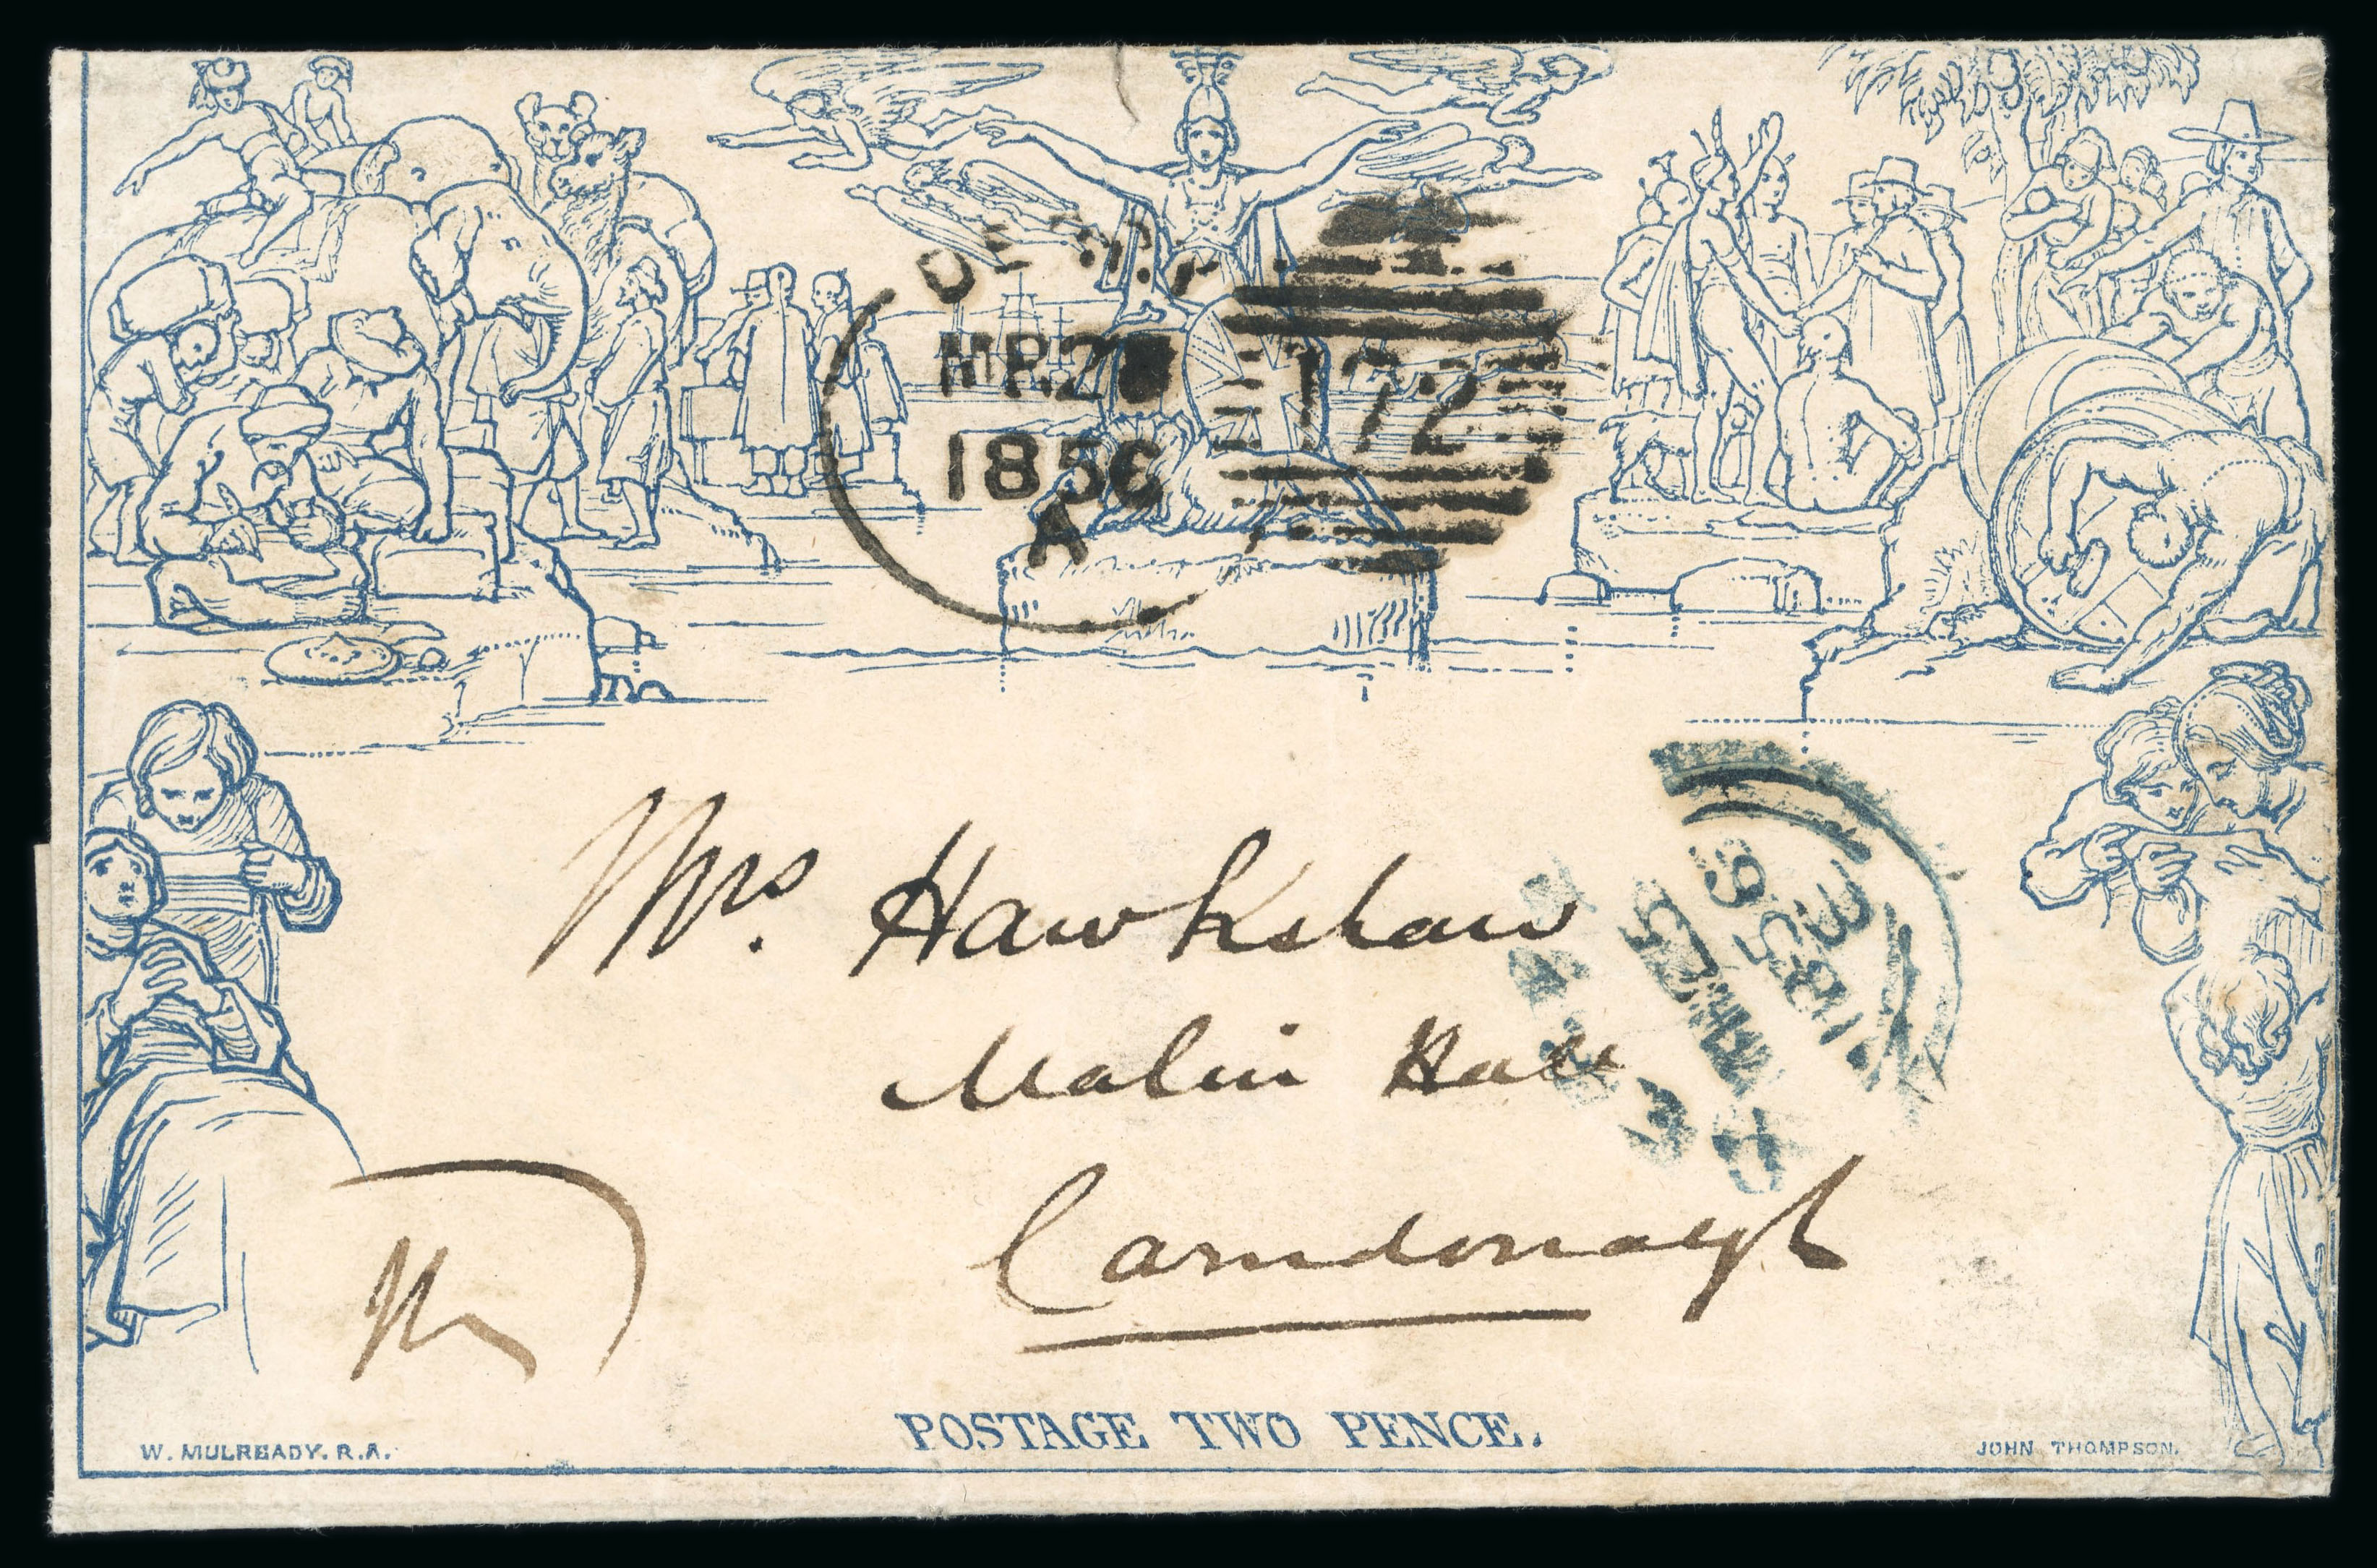 DERRY
MR2
1856
A
172
Mrs. Hawkshaw
Malin Hall
Carndonagh
1856
POSTAGE TWO PENCE.
W. MULREADY. R.A.
JOHN THOMPSON.